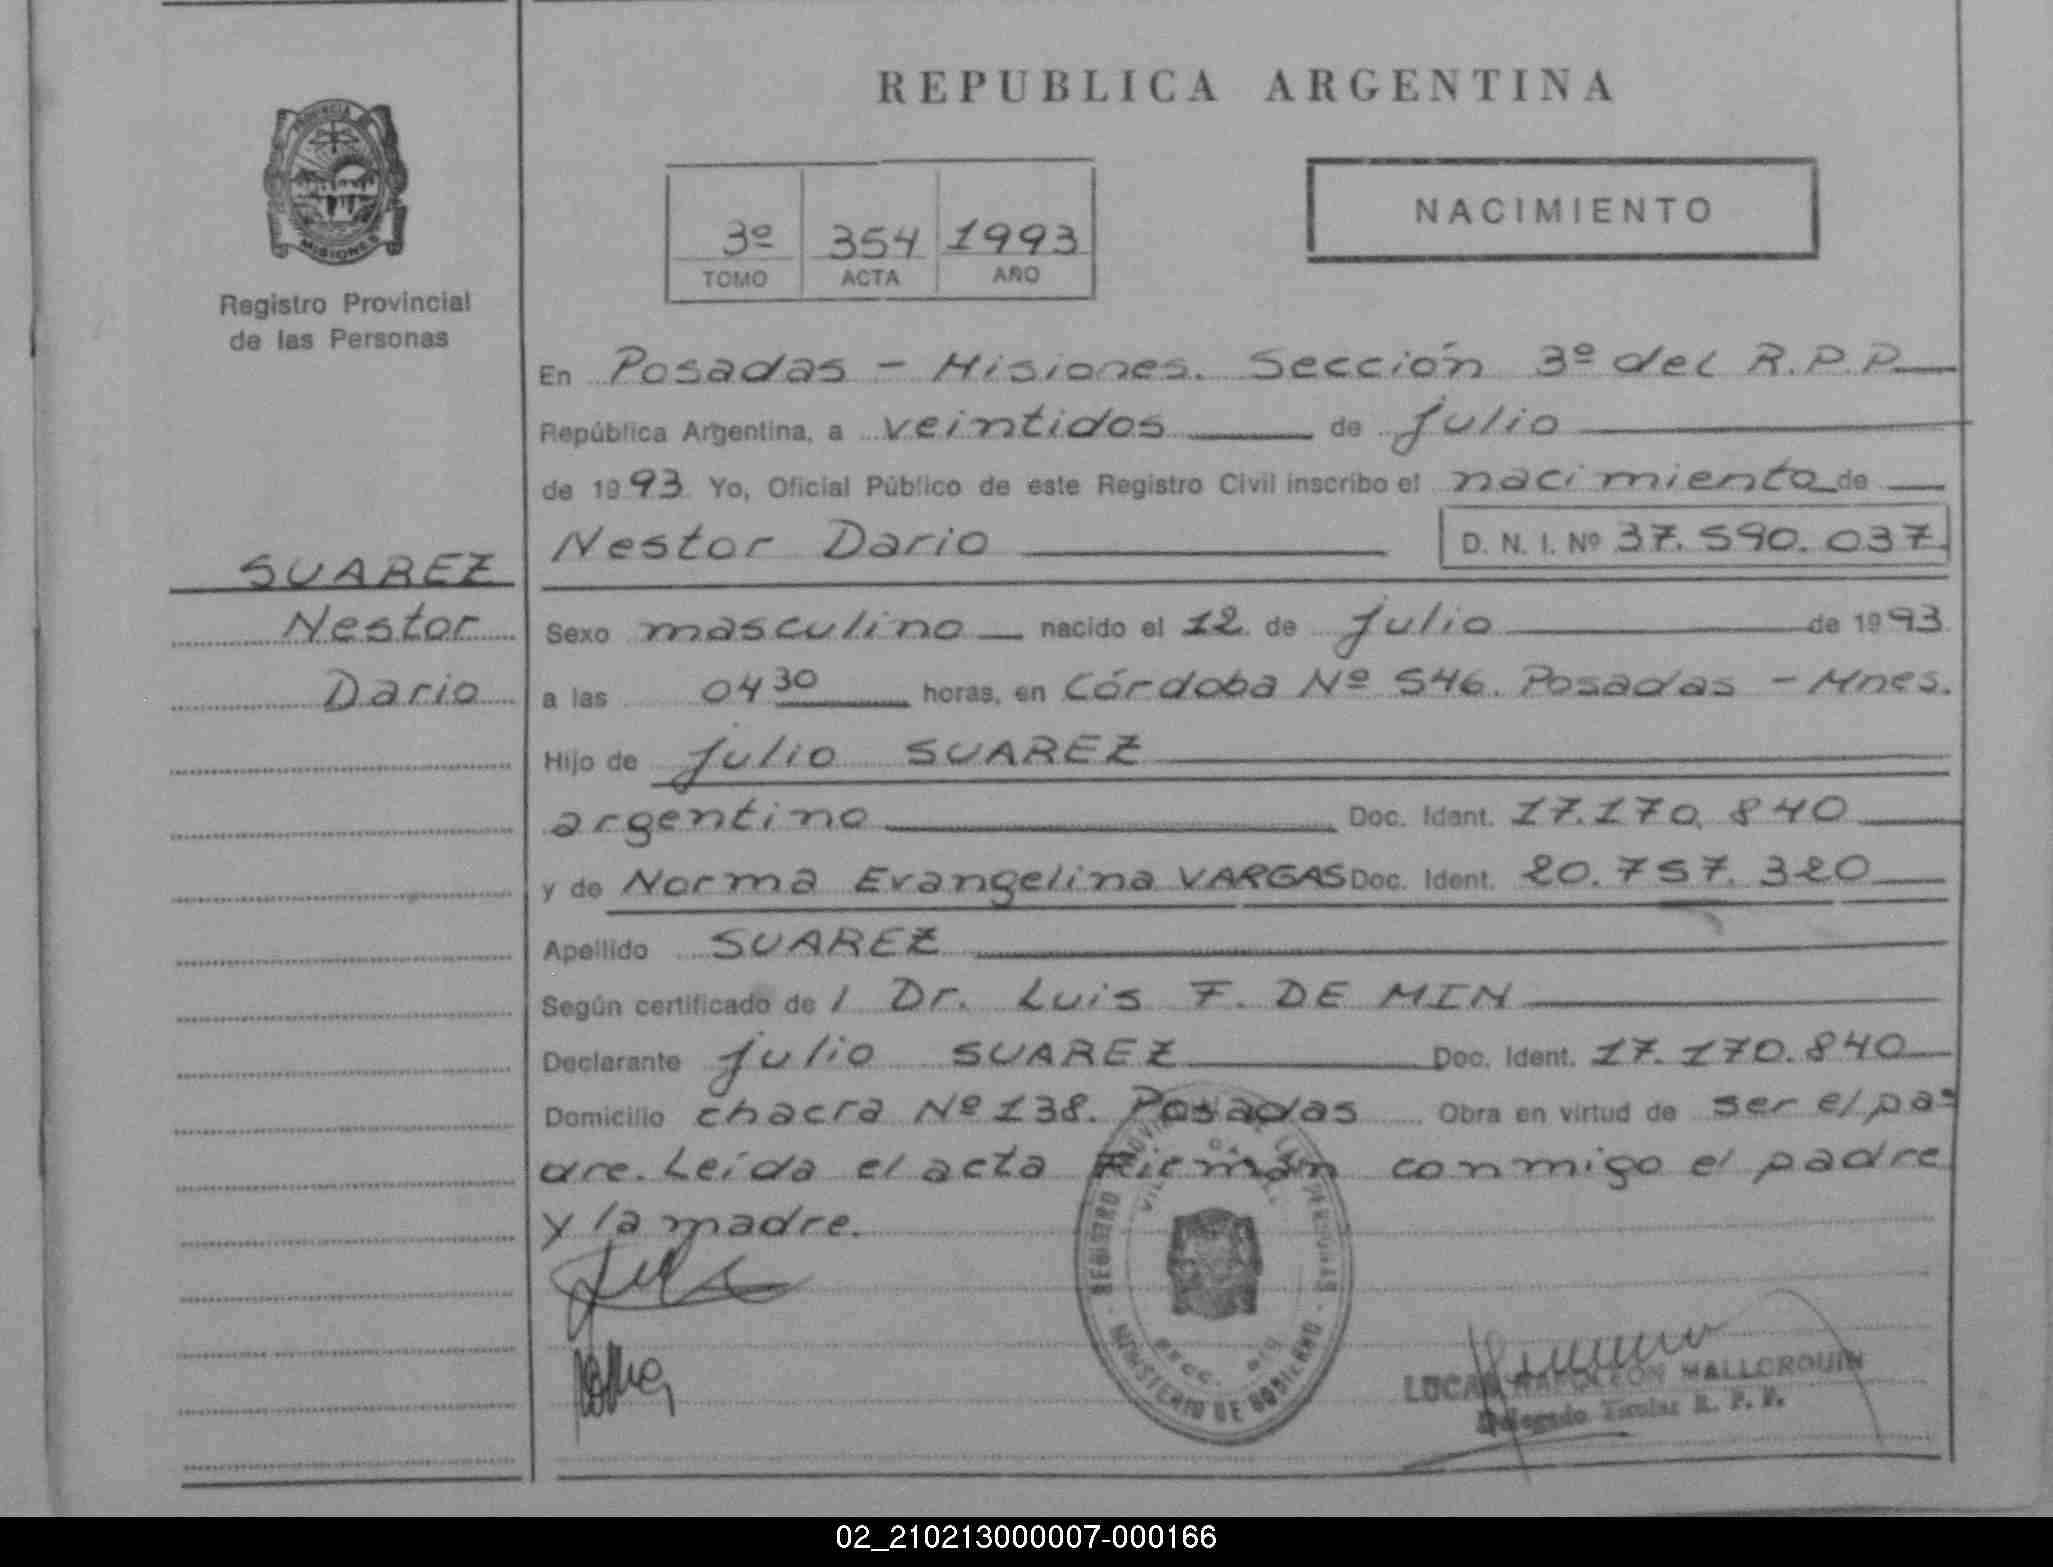 REPUBLICA ARGENTINA
PROVINCIA
MISIONES
Registro Provincial
de las Personas
3º 354 1993
TOMO ACTA AÑO
NACIMIENTO
En Posadas - Misiones. Sección 3º del R.P.P.
República Argentina, a veintidos de julio
de 1993 Yo, Oficial Público de este Registro Civil inscribo el nacimiento de
Nestor Dario D. N. I. Nº 37.590.037
SUAREZ
Nestor
Dario
Sexo masculino nacido el 12 de julio de 1993
a las 04 30 horas, en Córdoba Nº 546. Posadas - Mnes.
Hijo de julio SUAREZ
argentino Doc. Ident. 17.170.840
y de Norma Evangelina VARGAS Doc. Ident. 20.757.320
Apellido SUAREZ
Según certificado de l Dr. Luis F. DE MIN
Declarante julio SUAREZ Doc. Ident. 17.170.840
Domicilio chacra Nº 138. Posadas Obra en virtud de ser el pa-
dre. Leída el acta Firman conmigo el padre
y la madre.
REGISTRO PERSONAS
MINISTERIO DE GOBIERNO
SECC.
LUCAS NAPOLEON MALLORQUIN
Delegado Titular R. P. P.
02_210213000007-000166